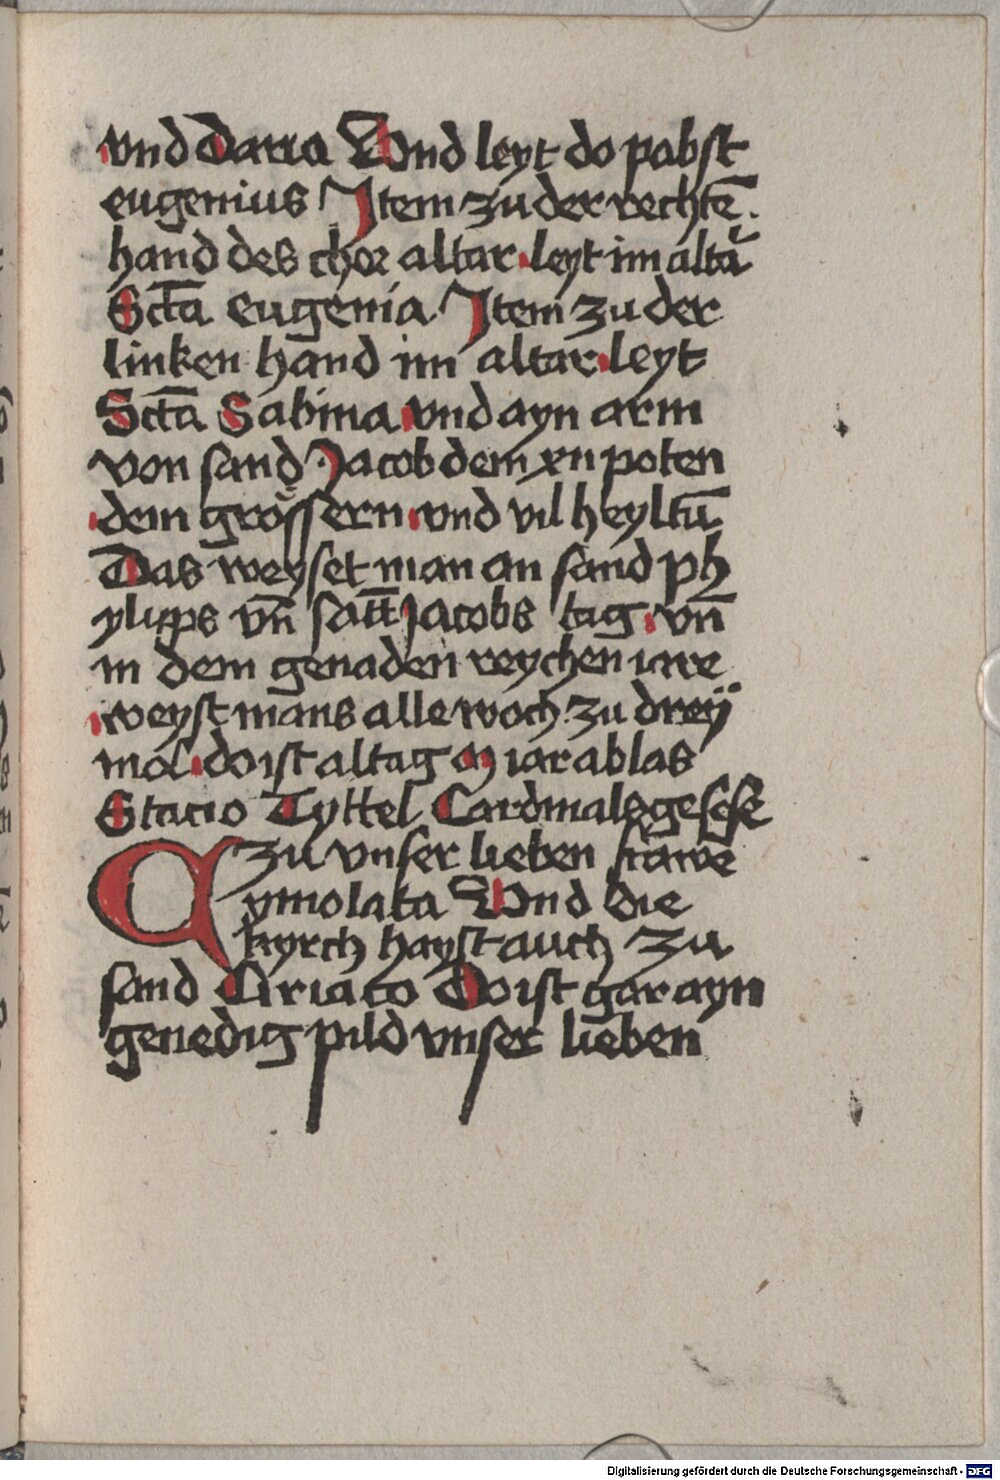 vnd Daria Vnd leyt do pabst
eugenius Jtem zu der rechtē.
hand des chor altar leyt im altar
Sct̄a eugenia Jtem zu der
linken hand im altar leyt
Sct̄a Sabina vnd ayn arm
von sand Jacob dem xii poten
dem grössern vnd vil heyltū
Das weyset man an sand ph
ylipps vn̄ satt̄ Jacobs tag vn̄
in dem genaden reychen iare
weyst mans alle woch zu dreÿ
mol do ist altag iar ablas
Stacio Tyttel Cardinals
zu vnser lieben frawe
ymolata Vnd die
kyrch hayst auch zu
sand Ciriaco Do ist gar ayn
genedig pild vnser lieben
Digitalisierung gefördert durch die Deutsche Forschungsgemeinschaft - DFG